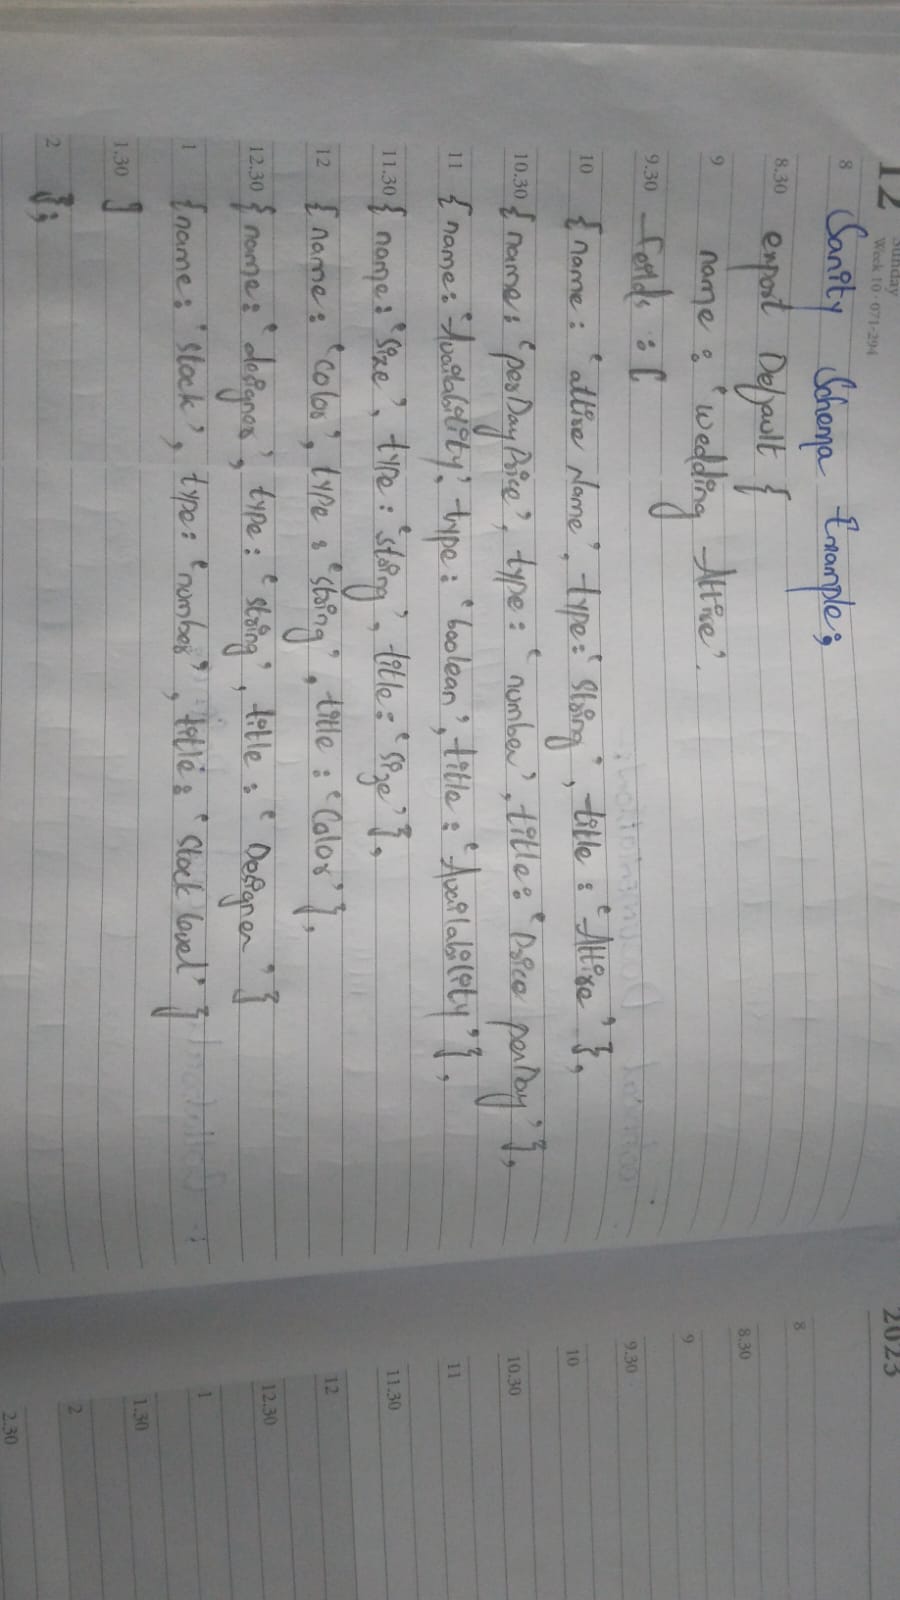 12 Sunday
Week 10 · 071-294
8 Sanity Schema Example;
8.30 export Default {
9 name : 'wedding Attire'.
9.30 feilds : [
10 {name : 'attire Name', type: 'string', title : 'Attire'},
10.30 {name: 'perDayPrice', type: 'number', title: 'Price perDay'},
11 {name: 'Availability', type: 'boolean', title : 'Availability'},
11.30 {name: 'size', type: 'string', title: 'size'},
12 {name: 'color', type : 'string', title : 'Color'},
12.30 {name: 'designer', type: 'string', title : 'Designer'}
1 {name: 'stock', type: 'number', title: 'Stock level'}
1.30 ]
2 };
2023
8
8.30
9
9.30
10
10.30
11
11.30
12
12.30
1
1.30
2
2.30